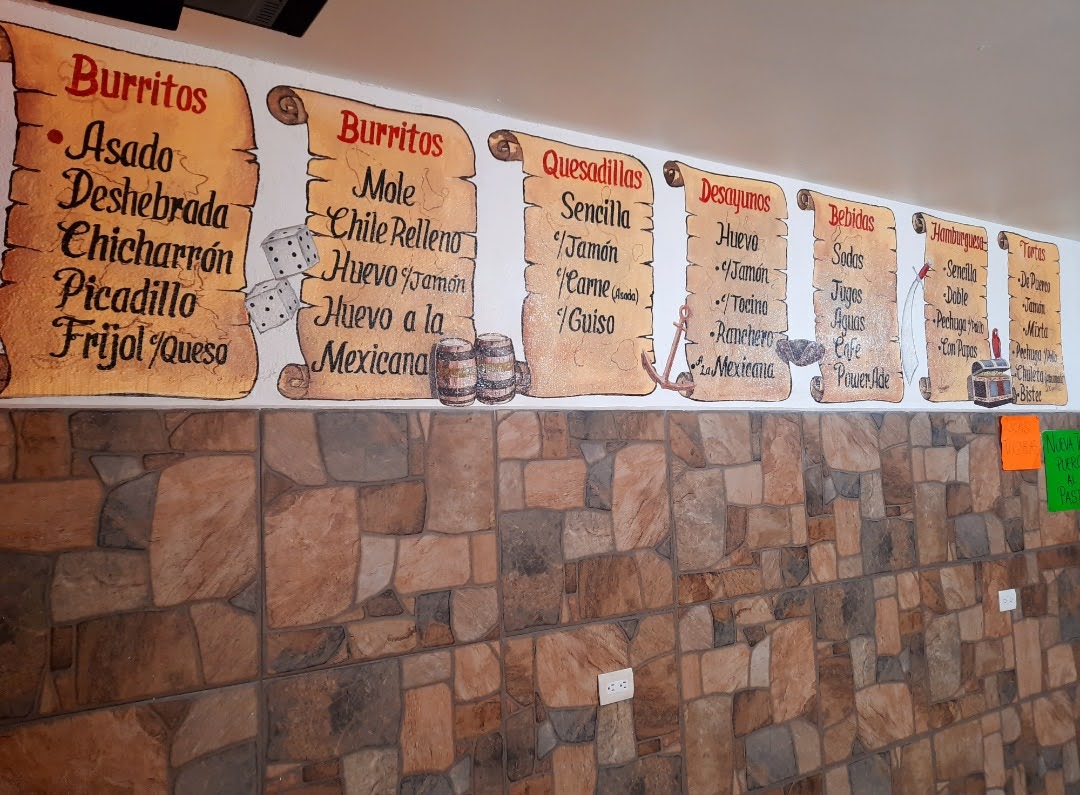 Burritos
• Asado
Deshebrada
Chicharrón
Picadillo
Frijol c/Queso
Burritos
Mole
Chile Relleno
Huevo c/Jamón
Huevo a la
Mexicana
Quesadillas
Sencilla
c/Jamón
c/Carne (Asada)
c/Guiso
Desayunos
Huevo
• c/Jamón
• c/Tocino
• Ranchero
A La Mexicana
Bebidas
Sodas
Jugos
Aguas
Cafe
PowerAde
Hamburguesa
• Sencilla
• Doble
• Pechuga
• Con Papas
Tortas
• De Puerco
• Jamón
• Mixta
• Pechuga
• Chuleta
• Bistec
NUEVA
AL